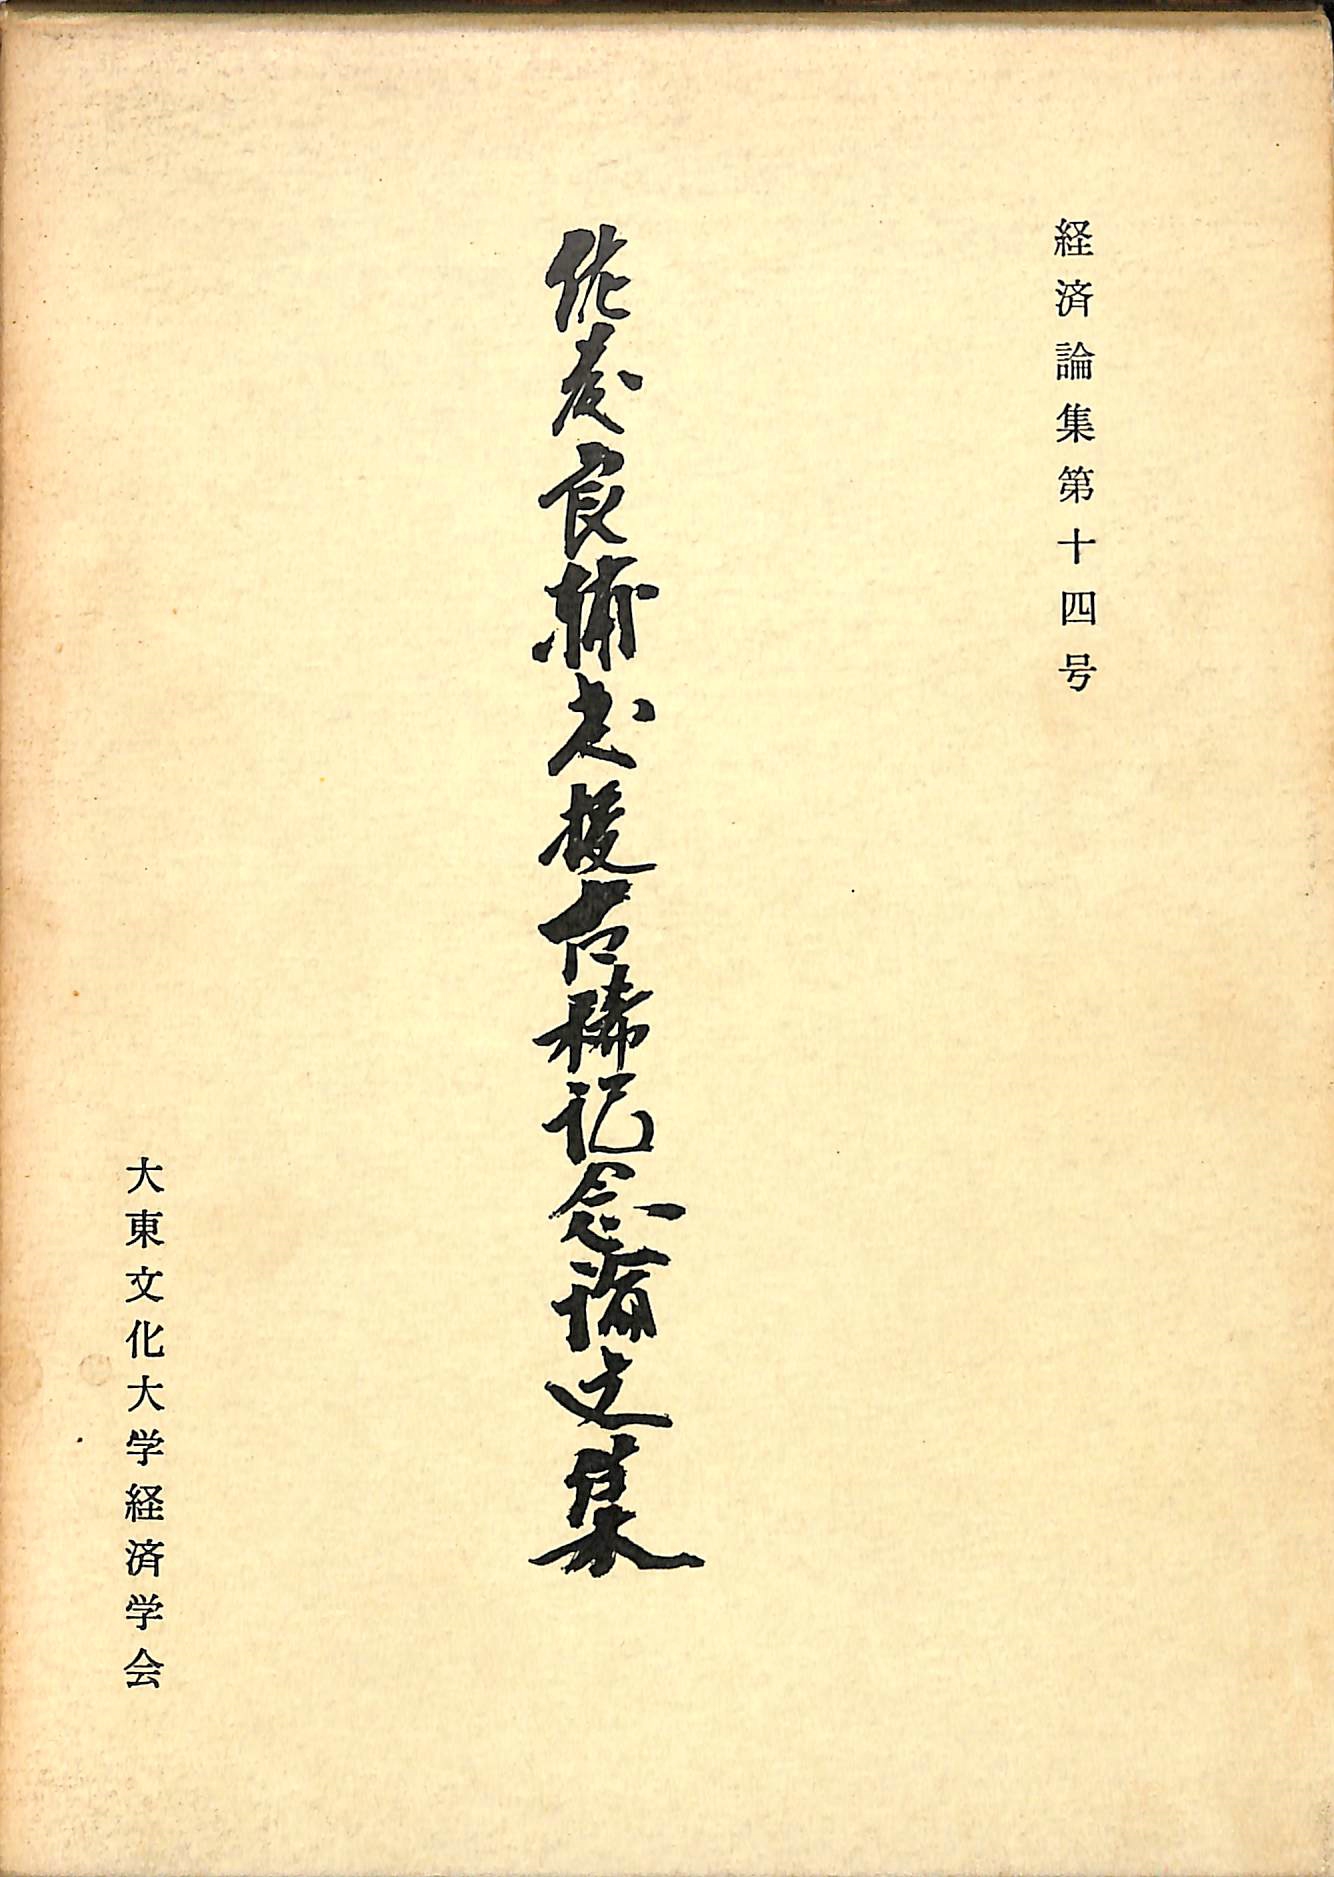 経済論集第十四号
佐 良 教授古稀記念論文集
大東文化大学経済学会